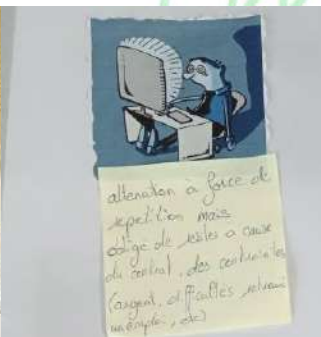 alienation à force de
repetition mais
obligé de rester a cause
du contrat, des contraintes
(argent, difficultés retrouver
un emploi, etc)